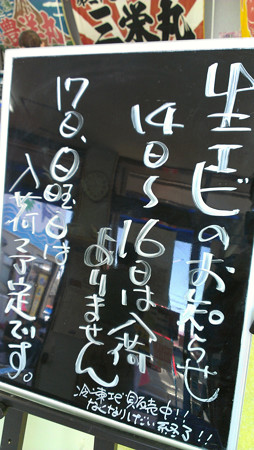 三栄丸
生エビのお知らせ
14日~16日は入荷
ありません
17日、日曜日は
入荷予定です。
冷凍エビ販売中!!
なくなりしだい終了!!